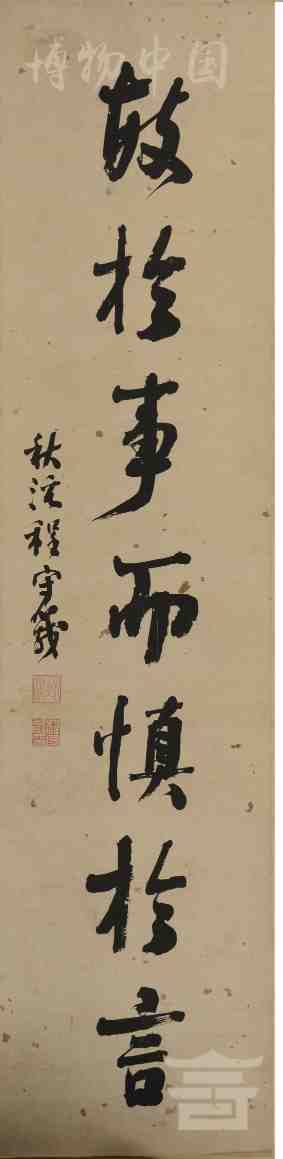 博物中国
敏於事而慎於言
秋程守